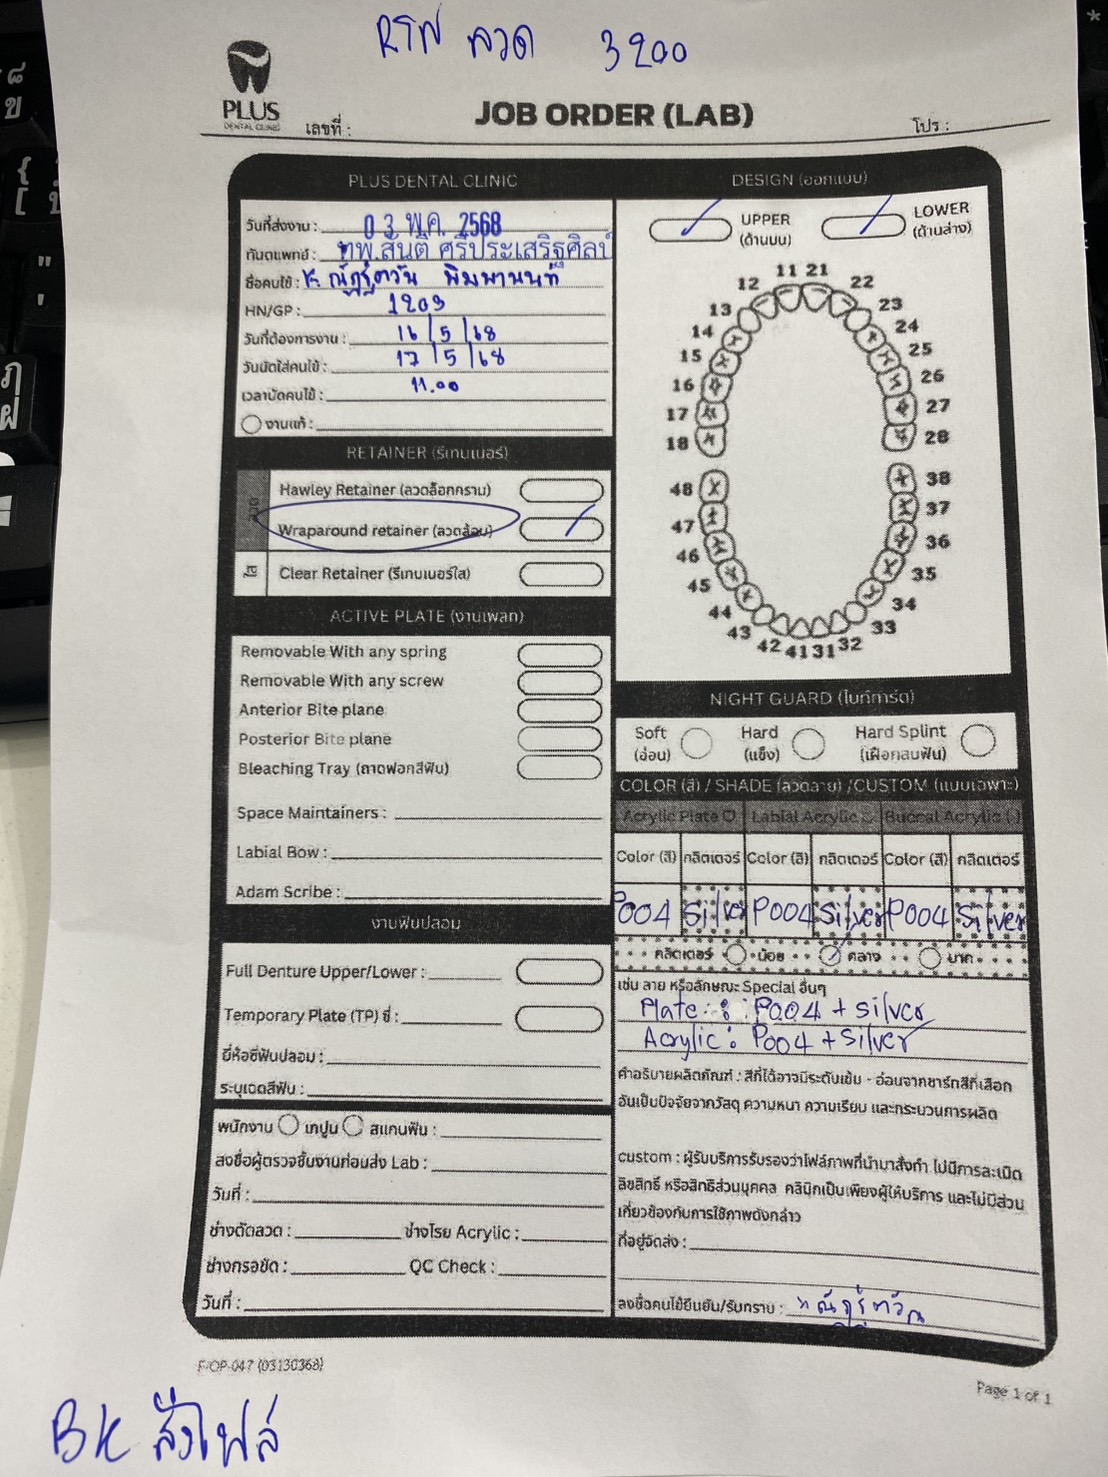 RTN ลวด 3200
PLUS
DENTAL CLINIC
เลขที่ :
JOB ORDER (LAB)
โปร :
PLUS DENTAL CLINIC
วันที่ส่งงาน : 03 พ.ค. 2568
ทันตแพทย์ : ทพ.สันติ ศรีประเสริฐศิลป์
ชื่อคนไข้ : พิมพานนท์
HN/GP : 1203
วันที่ต้องการงาน : 16/5/68
วันนัดใส่คนไข้ : 17/5/68
เวลานัดคนไข้ : 11.00
งานแก้ :
RETAINER (รีเทนเนอร์)
ลวด
Hawley Retainer (ลวดล็อกกราม)
Wraparound retainer (ลวดล้อม)
ใส
Clear Retainer (รีเทนเนอร์ใส)
ACTIVE PLATE (งานเพลท)
Removable With any spring
Removable With any screw
Anterior Bite plane
Posterior Bite plane
Bleaching Tray (ถาดฟอกสีฟัน)
Space Maintainers :
Labial Bow :
Adam Scribe :
งานฟันปลอม
Full Denture Upper/Lower :
Temporary Plate (TP) ซี่ :
ยี่ห้อซี่ฟันปลอม :
ระบุเฉดสีฟัน :
พนักงาน เทปูน สแกนฟัน :
ลงชื่อผู้ตรวจชิ้นงานก่อนส่ง Lab :
วันที่ :
ช่างดัดลวด : ช่างโรย Acrylic :
ช่างกรอขัด : QC Check :
วันที่ :
DESIGN (ออกแบบ)
UPPER
(ด้านบน)
LOWER
(ด้านล่าง)
11 21
12 22
13 23
14 24
15 25
16 26
17 27
18 28
48 38
47 37
46 36
45 35
44 34
43 33
42 41 31 32
NIGHT GUARD (ไนท์การ์ด)
Soft
(อ่อน)
Hard
(แข็ง)
Hard Splint
(เฝือกสบฟัน)
COLOR (สี) / SHADE (ลวดลาย) /CUSTOM (แบบเฉพาะ)
Acrylic Plate Labial Acrylic Buccal Acrylic
Color (สี) กลิตเตอร์ Color (สี) กลิตเตอร์ Color (สี) กลิตเตอร์
P004 Silver P004 Silver P004 Silver
กลิตเตอร์ น้อย กลาง มาก
เช่น ลาย หรือลักษณะ Special อื่นๆ
Plate : P004 + Silver
Acrylic : P004 + Silver
คำอธิบายผลิตภัณฑ์ : สีที่ได้อาจมีระดับเข้ม - อ่อนจากชาร์ทสีที่เลือก
อันเป็นปัจจัยจากวัสดุ ความหนา ความเรียบ และกระบวนการผลิต
custom : ผู้รับบริการรับรองว่าไฟล์ภาพที่นำมาสั่งทำ ไม่มีการละเมิด
ลิขสิทธิ์ หรือสิทธิส่วนบุคคล คลินิกเป็นเพียงผู้ให้บริการ และไม่มีส่วน
เกี่ยวข้องกับการใช้ภาพดังกล่าว
ที่อยู่จัดส่ง :
ลงชื่อคนไข้ยืนยัน/รับทราบ :
F-OP-047 (03130368)
Page 1 of 1
BK สั่งไฟล์